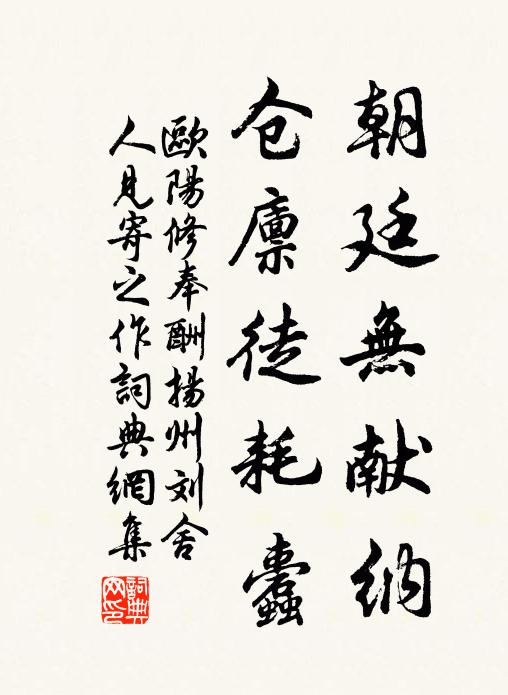 朝廷無献纳
仓廪徒耗蠹
歐陽修奉酬揚州刘舍
人見寄之作詞典網集
詞典
网印